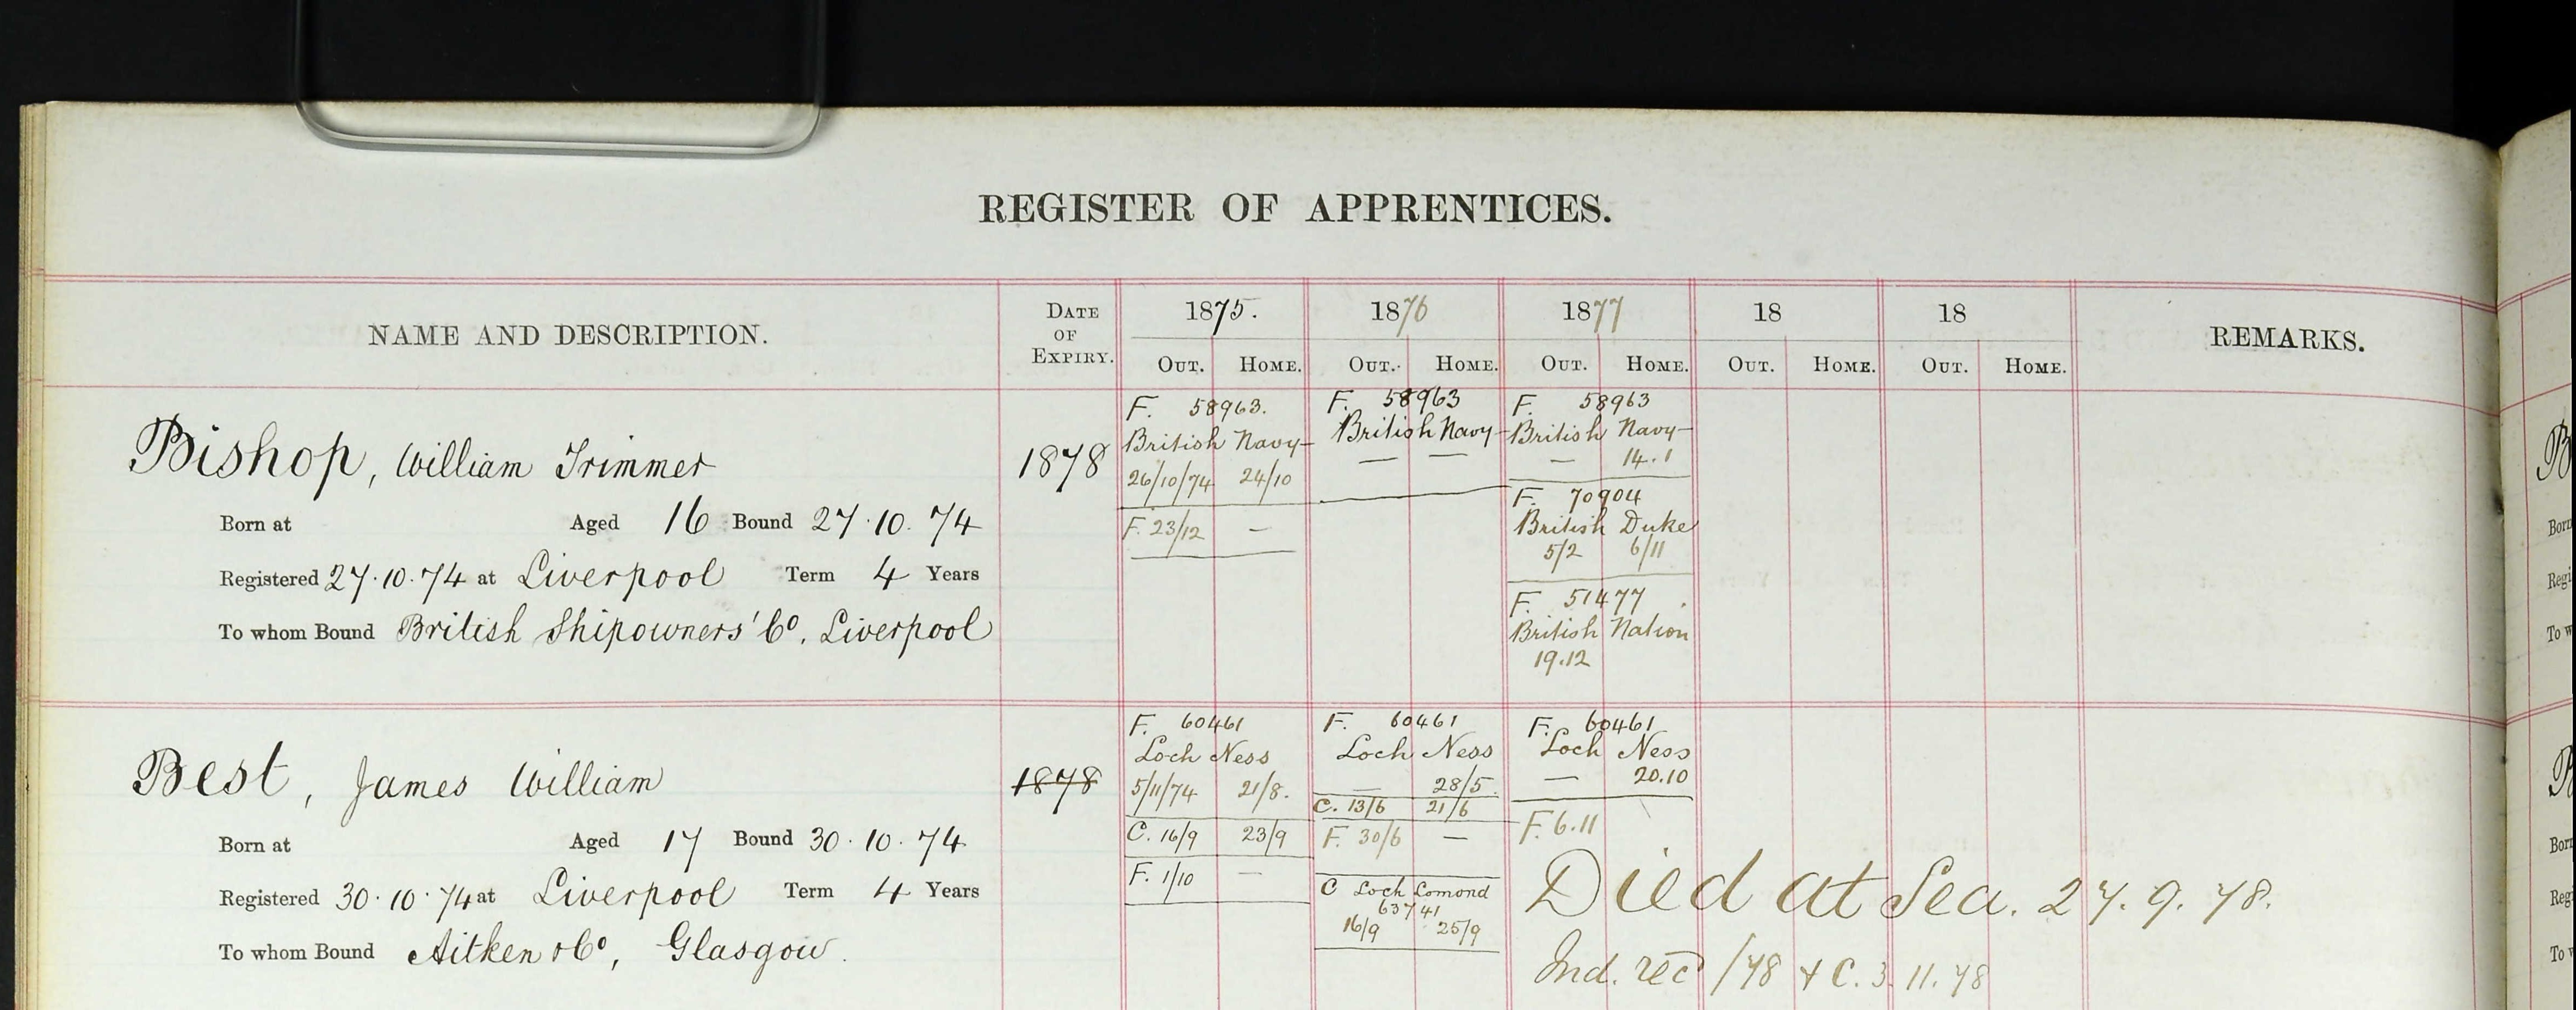 REGISTER OF APPRENTICES.
NAME AND DESCRIPTION.
DATE OF EXPIRY.
1875.
1876
1877
18
18
REMARKS.
OUT. HOME. OUT. HOME. OUT. HOME. OUT. HOME. OUT. HOME.
Bishop, William Trimmer
Born at Aged 16 Bound 27.10.74
Registered 27.10.74 at Liverpool Term 4 Years
To whom Bound British Shipowners' Co. Liverpool
1878
F. 58963.
British Navy
26/10/74 24/10
F. 23/12 —
F. 58963
British Navy
— —
F. 58963
British Navy
— 14.1
F. 70904
British Duke
5/2 6/11
F. 51477
British Nation
19.12
Best, James William
Born at Aged 17 Bound 30.10.74
Registered 30.10.74 at Liverpool Term 4 Years
To whom Bound Aitken & Co, Glasgow.
1878
F. 60461
Loch Ness
5/11/74 21/8.
C. 16/9 23/9
F. 1/10 —
F. 60461
Loch Ness
— 28/5.
C. 13/6 21/6
F. 30/6 —
C Loch Lomond
63741
16/9 25/9
F. 60461
Loch Ness
— 20.10
F. 6.11
Died at Sea. 27.9.78.
Ind. rec'd /78 & C. 3.11.78
B
Born
Regi
To w
B
Born
Reg
To w